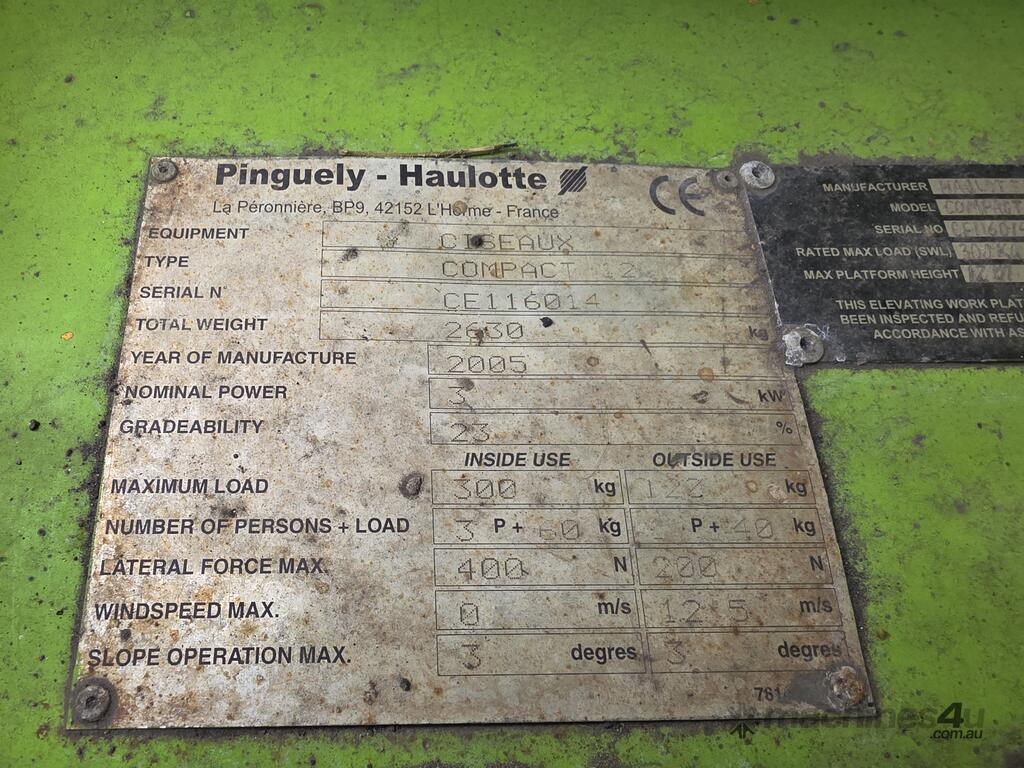 Pinguely - Haulotte
CE
La Péronnière, BP9, 42152 L'Horme - France
EQUIPMENT CISEAUX
TYPE COMPACT 12
SERIAL N° CE116014
TOTAL WEIGHT 2630 kg
YEAR OF MANUFACTURE 2005
NOMINAL POWER 3 kW
GRADEABILITY 23 %
INSIDE USE OUTSIDE USE
MAXIMUM LOAD 300 kg kg
NUMBER OF PERSONS + LOAD 3 P + 60 kg P + 40 kg
LATERAL FORCE MAX. 400 N 200 N
WINDSPEED MAX. 0 m/s 12.5 m/s
SLOPE OPERATION MAX. 3 degres 3 degres
MANUFACTURER
MODEL
SERIAL NO
RATED MAX LOAD (SWL)
MAX PLATFORM HEIGHT
THIS ELEVATING WORK PLAT
BEEN INSPECTED AND REFU
ACCORDANCE WITH AS
machines4u
.com.au